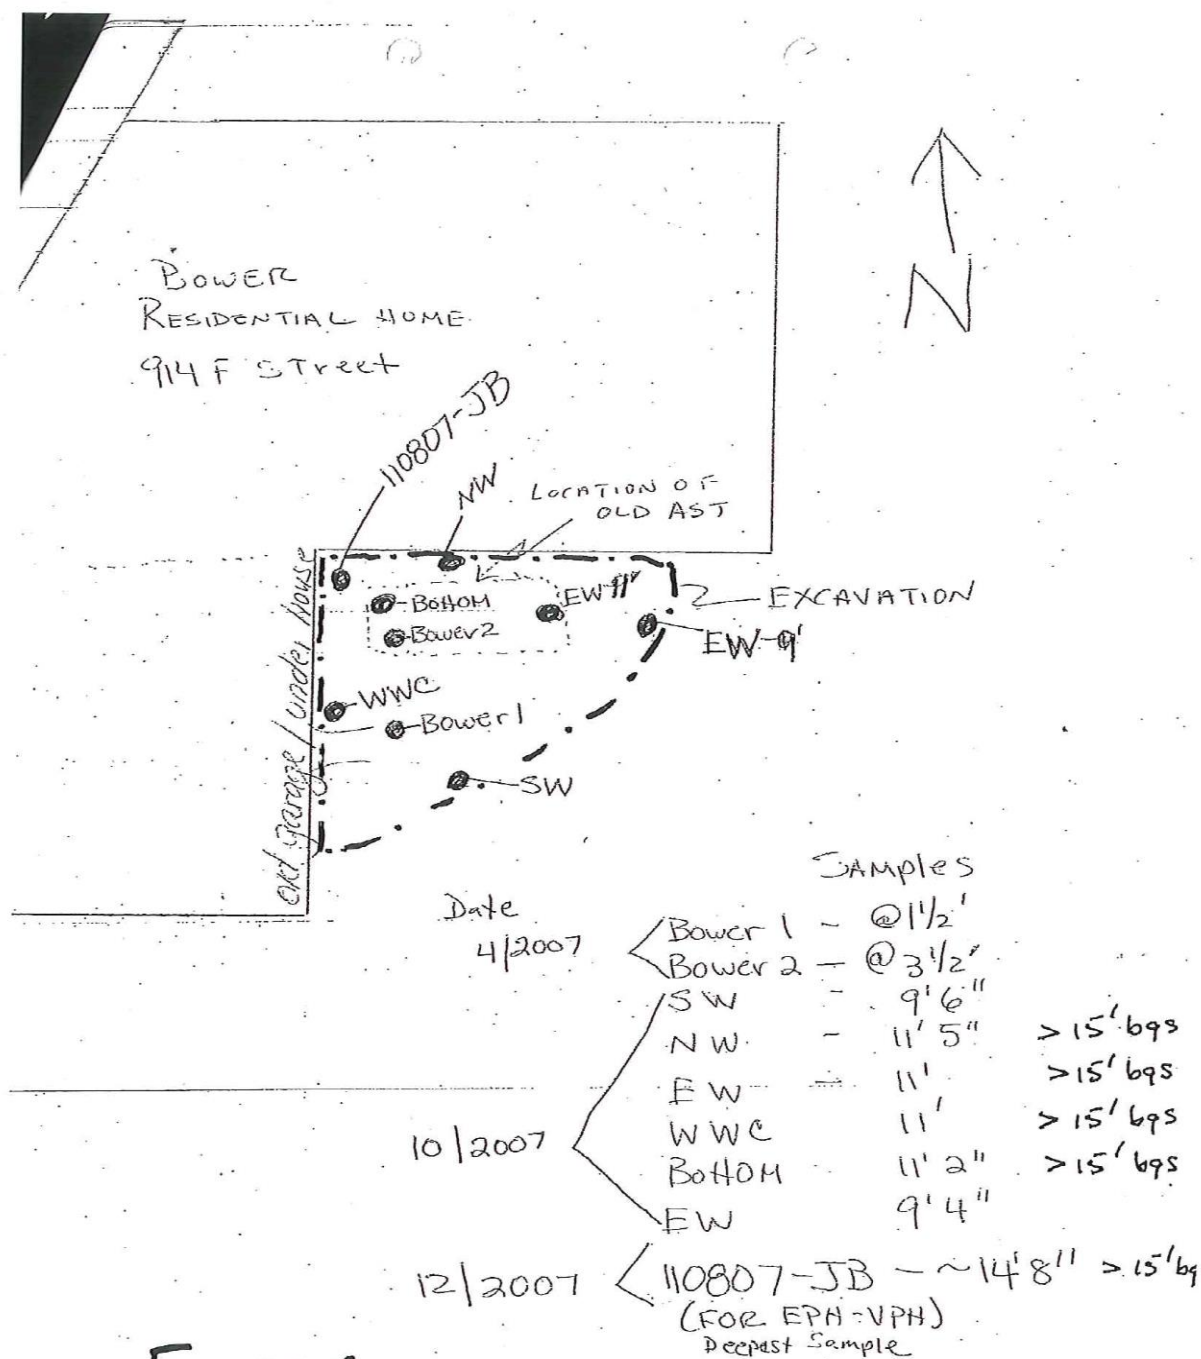 BOWER
RESIDENTIAL HOME
914 F Street
N
110807-JB
NW
LOCATION OF
OLD AST
BOTTOM
Bower 2
EW 11'
EXCAVATION
EW-9'
WWC
Bower 1
SW
old garage / under house
SAMPLES
Date
4/2007
Bower 1 - @ 1 1/2'
Bower 2 - @ 3 1/2'
10/2007
SW - 9' 6"
NW - 11' 5" > 15' bgs
EW - 11' > 15' bgs
WWC 11' > 15' bgs
BOTTOM 11' 2" > 15' bgs
EW 9' 4"
12/2007
110807-JB - ~14' 8" > 15' bg
(FOR EPH-VPH)
Deepest Sample